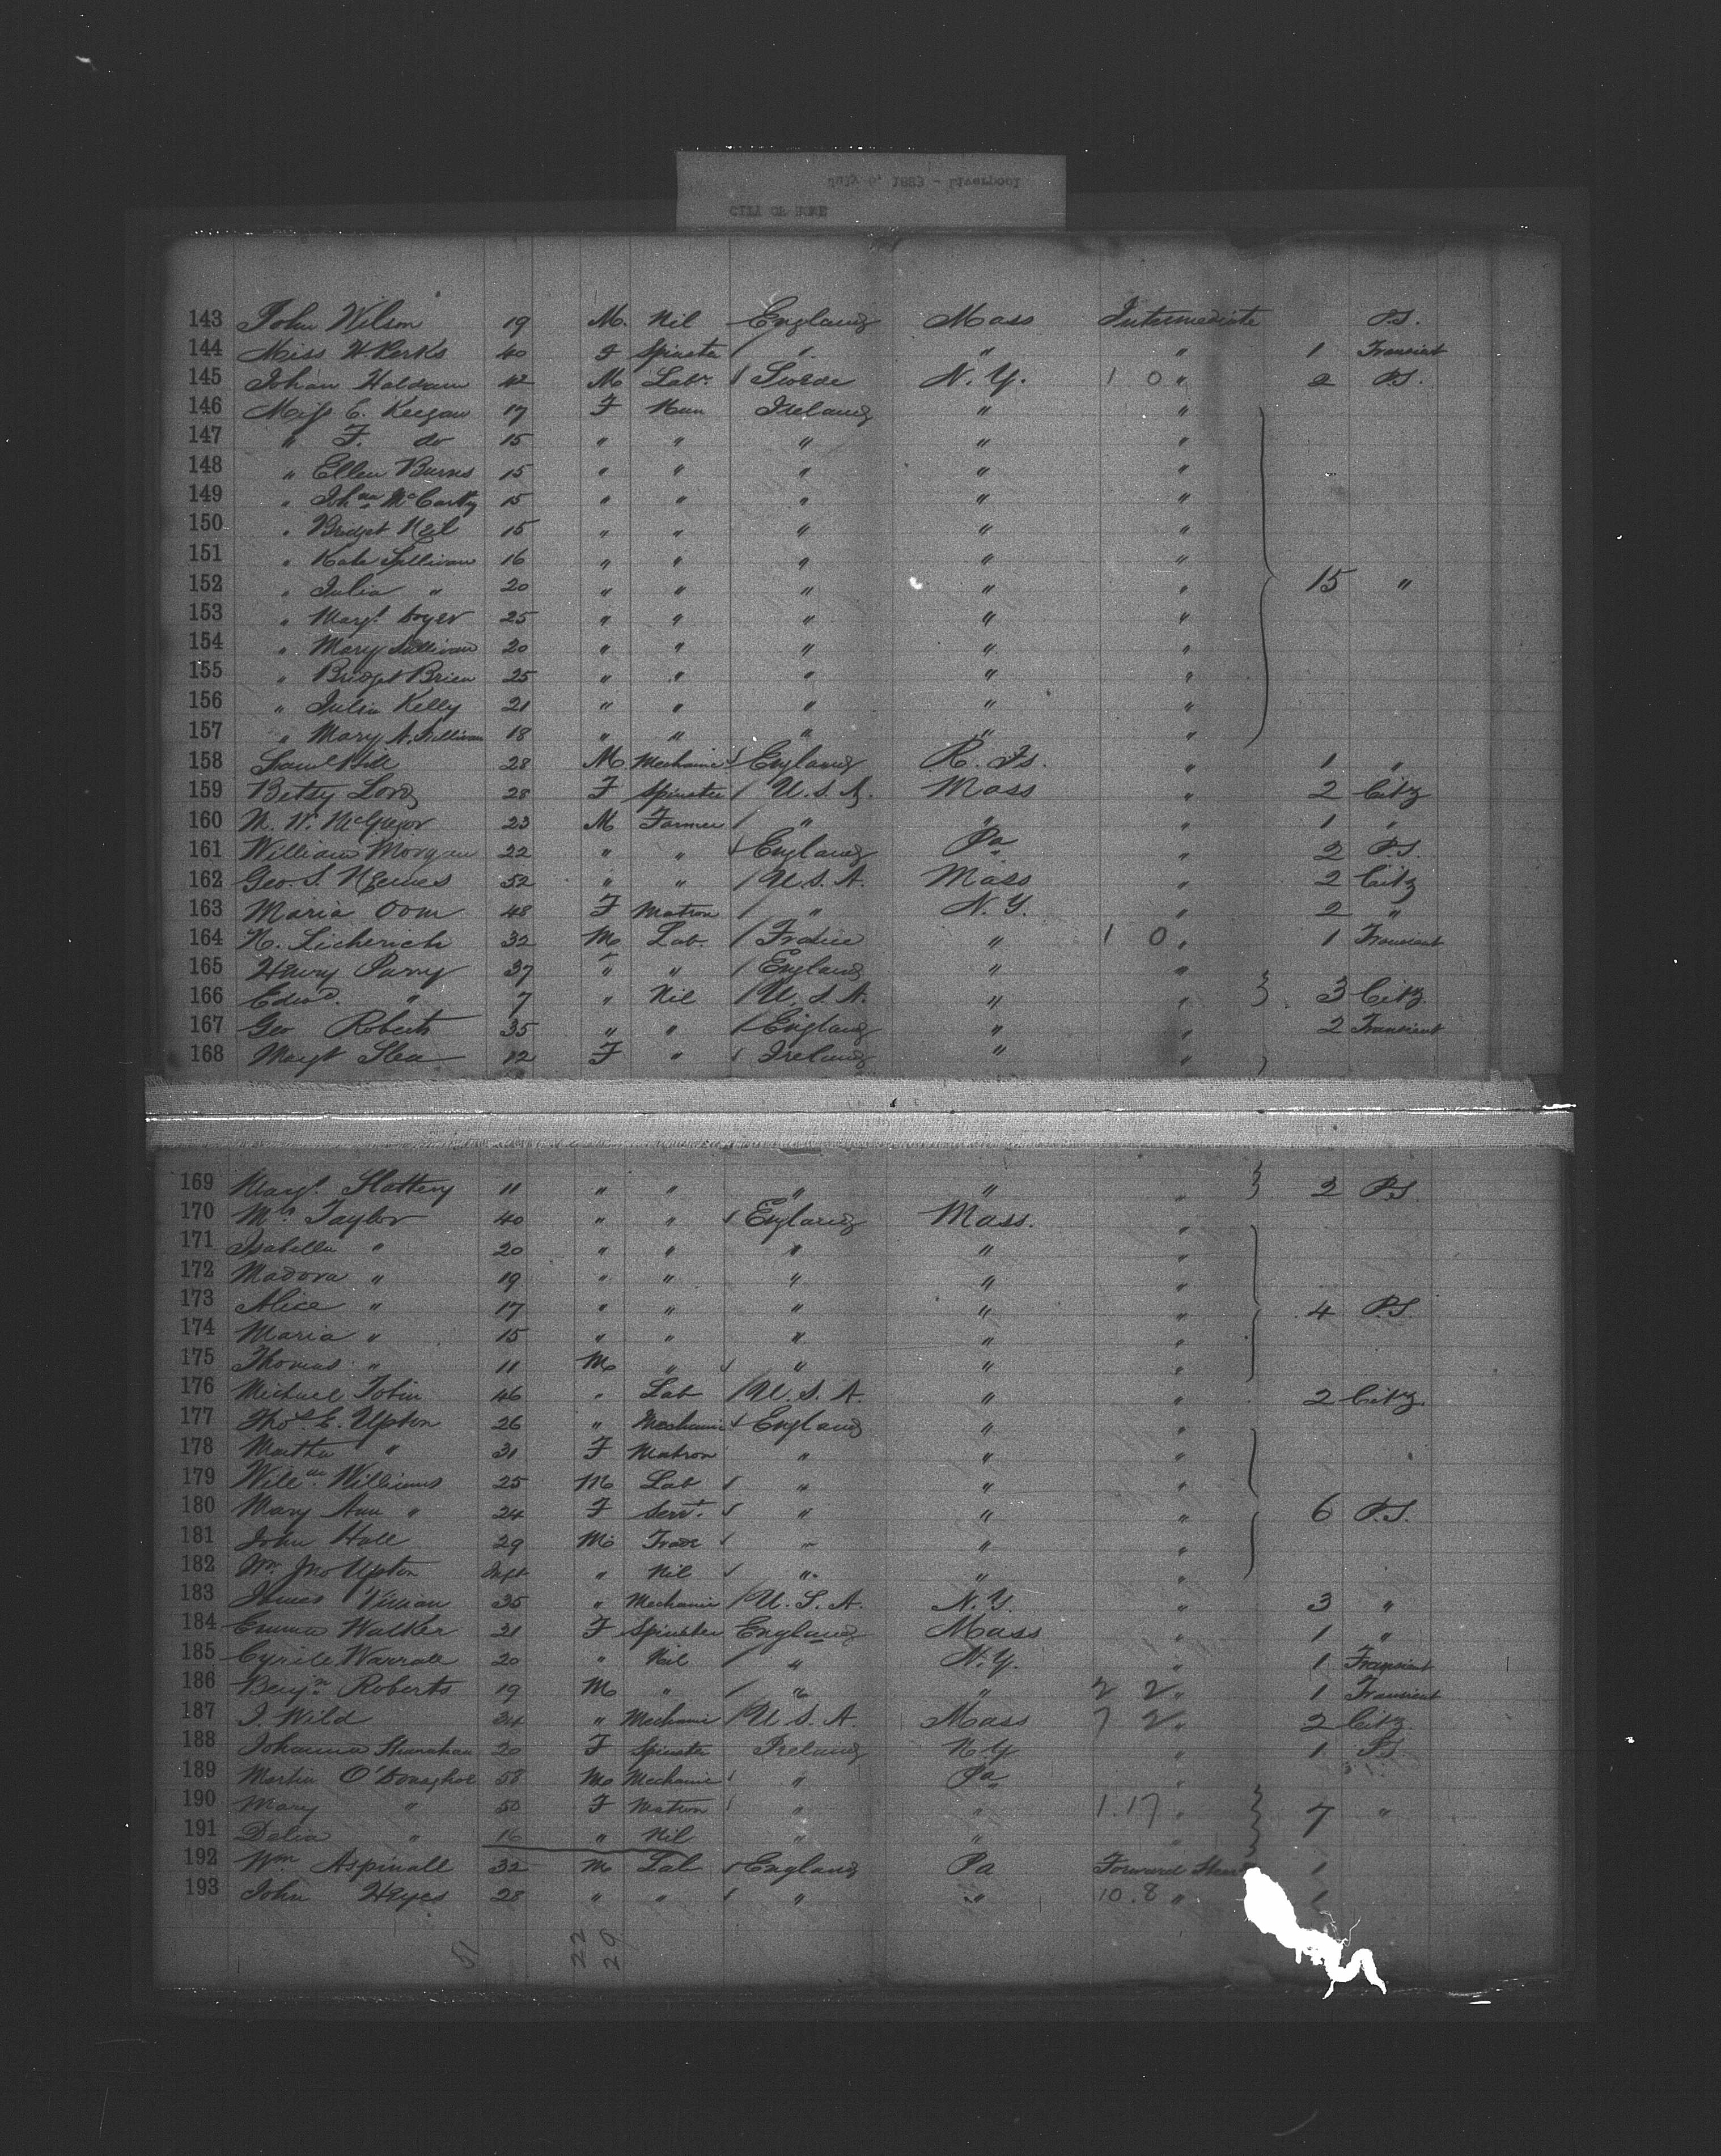 July 6, 1883 - Liverpool
CITY OF ROME
143 John Wilson 19 M. Nil England Mass Intermediate P.S.
144 Miss H Perks 40 F Spinster / " " " 1 Transient
145 Johan Haldam 42 M Labr. / Swede N.Y. 1 0 " 2 P.S.
146 Miss E. Keegan 17 F Nun Ireland " "
147 " F. do 15 " " " " "
148 " Ellen Burns 15 " " " " "
149 " Joh na McCarthy 15 " " " " "
150 " Bridget Neil 15 " " " " "
151 " Kate Sullivan 16 " " " " "
152 " Julia " 20 " " " " " 15 "
153 " Margt. 25 " " " " "
154 " Mary Sullivan 20 " " " " "
155 " Bridget Brien 25 " " " " "
156 " Julia Kelly 21 " " " " "
157 " Mary A. Sullivan 18 " " " " "
158 Saml Hill 28 M Mechanic / England R. Is. " 1 "
159 Betsy Lord 28 F Spinster / U.S.A. Mass " 2 Citz
160 N. W. McGregor 23 M Farmer / " " " 1 "
161 William Morgan 22 " " / England Pa " 2 P.S.
162 Geo. S. 52 " " / U.S.A. Mass " 2 Citz
163 Maria Oom 48 F Matron / " N.Y. " 2 "
164 N. Licherich 32 M Lab. / France " 1 0 " 1 Transient
165 Henry Parry 37 " " / England " "
166 Edwd. " 7 " Nil / U.S.A. " " 3 Citz.
167 Geo Roberts 35 " " / England " " 2 Transient
168 Margt Shea 12 F " / Ireland " "
169 Margt. Slattery 11 " " " " " 2 P.S.
170 Mrs Taylor 40 " " / England Mass. "
171 Isabella " 20 " " " " "
172 Madora " 19 " " " " "
173 Alice " 17 " " " " " 4 P.S
174 Maria " 15 " " " " "
175 Thomas " 11 M " / " " "
176 Michael Tobin 46 " Lab / U.S.A. " " 2 Citz.
177 Thos E. Upton 26 " Mechanic / England " "
178 Martha " 31 F Matron " " "
179 Willm. Williams 25 M Lab / " " "
180 Mary Ann " 24 F Servt. / " " " 6 P.S.
181 John Hall 29 M Trade / " " "
182 Wm. Jno Upton Inft " Nil / " " "
183 James 35 " Mechanic / U.S.A. N.Y. " 3 "
184 Emma Walker 21 F Spinster England Mass " 1 "
185 Cyrille Warrall 20 " Nil / " N.Y. " 1 Transient
186 Benjn. Roberts 19 M " / " " 2 2 " 1 Transient
187 J. Wild 34 " Mechanic / U.S.A. Mass 7 2 " 2 Citz.
188 Johanna Shanahan 20 F Spinster Ireland N.Y " 1 P.S.
189 Martin O'Donaghoe 58 M Mechanic / " Pa "
190 Mary " 50 F Matron / " " 1.17 " 7 "
191 Delia " 16 " Nil " " "
192 Wm Aspinall 32 M Lab / England Pa Forward 1
193 John Hayes 28 " " / " " 10.8 " 1
51 22 29